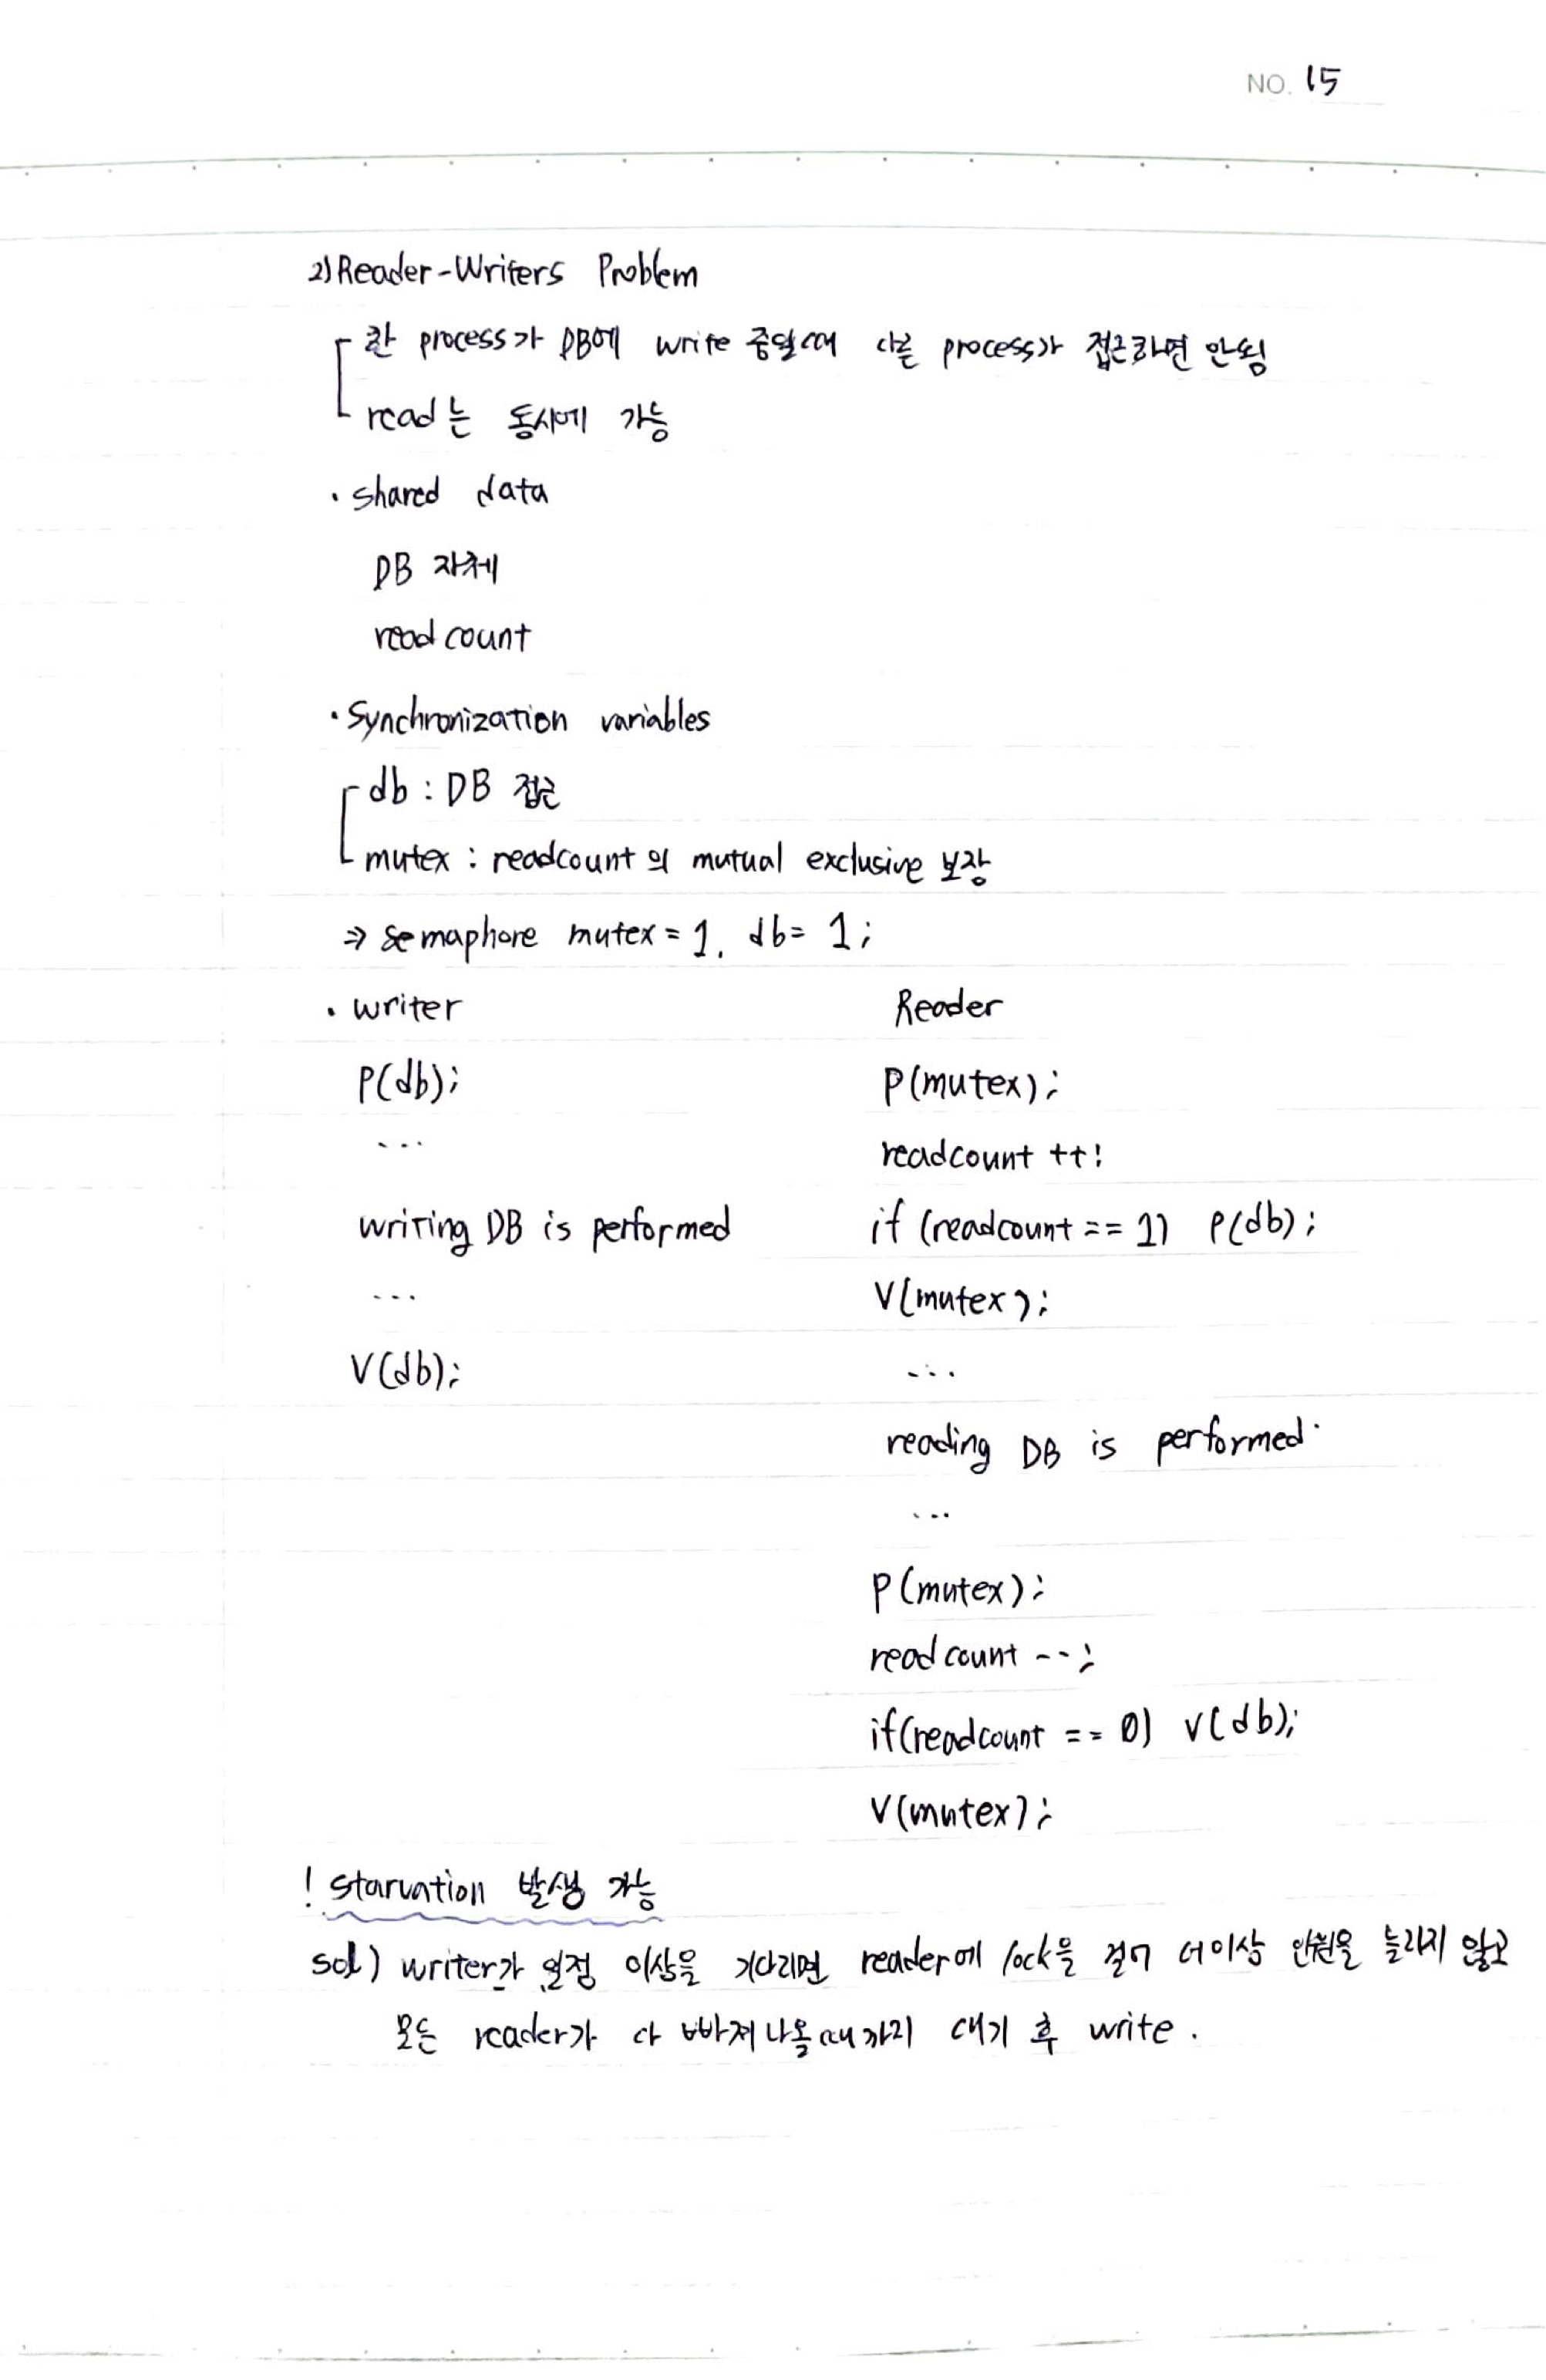 NO. 15
2) Reader-Writers Problem
한 process가 DB에 write 중일때 다른 process가 접근하면 안됨
read는 동시에 가능
· shared data
DB 자체
readcount
· Synchronization variables
db : DB 접근
mutex : readcount의 mutual exclusive 보장
⇒ semaphore mutex = 1, db = 1;
· writer
P(db);
...
writing DB is performed
...
V(db);
Reader
P(mutex);
readcount ++;
if (readcount == 1) P(db);
V(mutex);
...
reading DB is performed.
...
P(mutex);
readcount --;
if(readcount == 0) V(db);
V(mutex);
! Starvation 발생 가능
sol) writer가 일정 이상을 기다리면 reader에 lock을 걸어 더이상 인원을 늘리지 않고
모든 reader가 다 빠져나올때까지 대기 후 write.